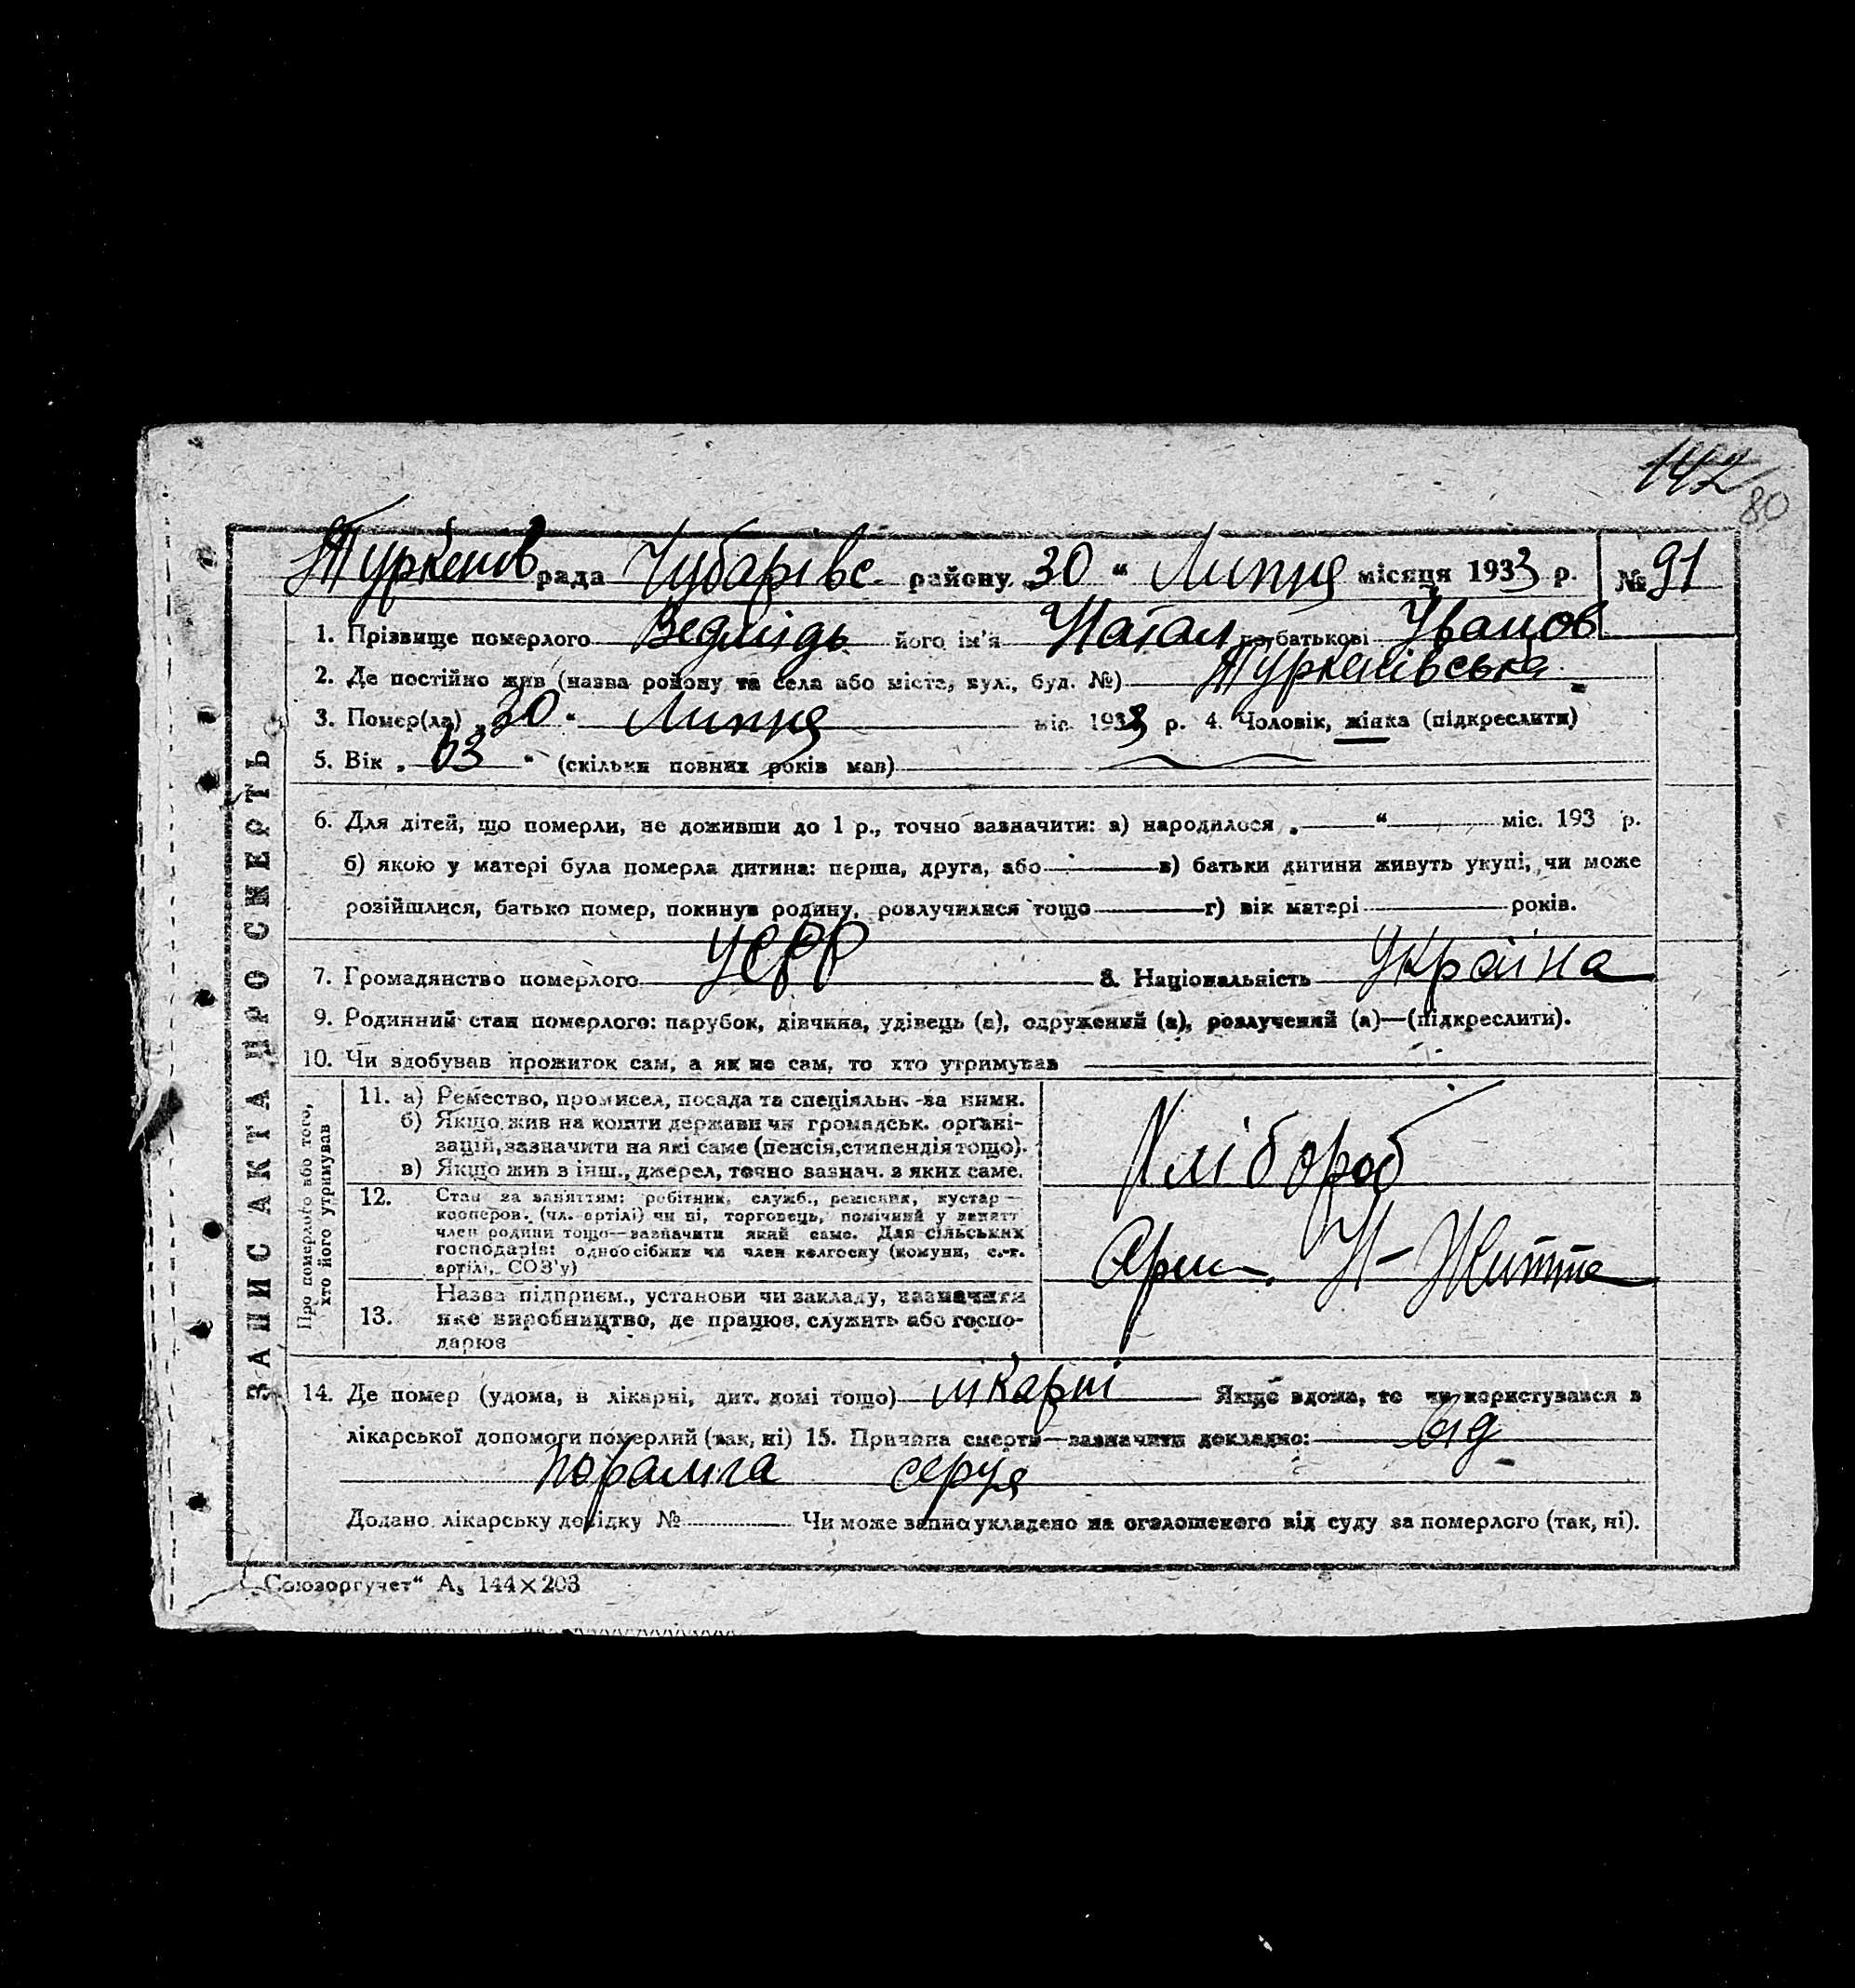 142
80
Туркенов рада Чубарівс. району 30 “ Липня місяця 1933 р. № 91
1. Прізвище померлого Ведмідь його ім'я Натал по батькові Іванов
2. Де постійно жив (назва району та села або міста, вул., буд. №) Туркенівська
3. Помер(ла) „30“ Липня міс. 1933 р. 4. Чоловік, жінка (підкреслити)
5. Вік „ 63 “ (скільки повних років мав)
6. Для дітей, що померли, не доживши до 1 р., точно зазначити: а) народилося „ “ міс. 193 р.
б) якою у матері була померла дитина: перша, друга, або в) батьки дитини живуть укупі, чи може
розійшлися, батько помер, покинув родину, розлучилися тощо г) вік матері років.
7. Громадянство померлого УСРР 8. Національність Україна
9. Родинний стан померлого: парубок, дівчина, удівець (а), одружений (а), розлучений (а)—(підкреслити).
10. Чи здобував прожиток сам, а як не сам, то хто утримував
11. а) Ремество, промисел, посада та спеціяльн. за ними.
б) Якщо жив на кошти держави чи громадськ. органі-
зацій, зазначити на які саме (пенсія, стипендія тощо).
в) Якщо жив з інш., джерел, точно зазнач. з яких саме.
Хлібороб
12. Стан за заняттям: робітник, служб., ремісник, кустар—
кооперов. (чл. артілі) чи ні, торговець, помічний у занятт
член родини тощо—зазначити який саме. Для сільських
господарів: одноосібник чи член колгоспу (комуни, с.-г.
артілі, СОЗ'у)
Арт. Н-Життя
13. Назва підприєм., установи чи закладу, зазначити
яке виробництво, де працює, служить або госпо-
дарює
14. Де помер (удома, в лікарні, дит. домі тощо) лікарні Якщо вдома, то чи користувався в
лікарської допомоги померлий (так, ні) 15. Причина смерти—зазначити докладно: від
пораліча серця
Додано лікарську довідку № Чи може запис укладено на оголошеного від суду за померлого (так, ні).
ЗАПИС АКТА ПРО СМЕРТЬ
Про померлого або того,
хто його утримував
„Союзоргучет“ А₅ 144×203